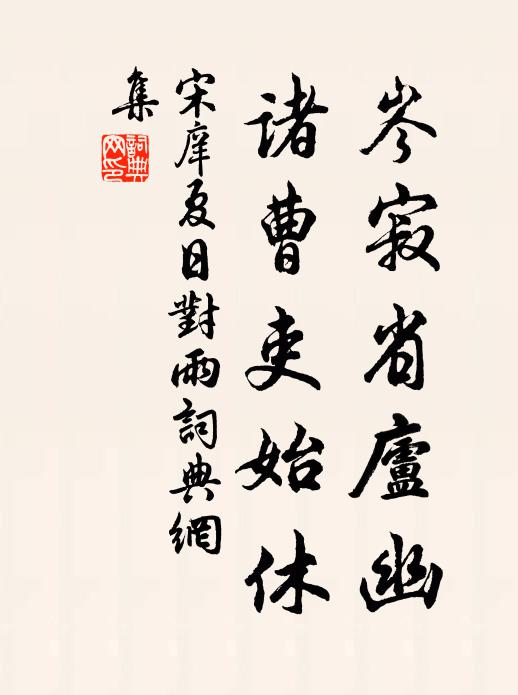 岑寂省廬幽
諸曹吏始休
宋庠夏日對雨詞典網
集
詞典網印